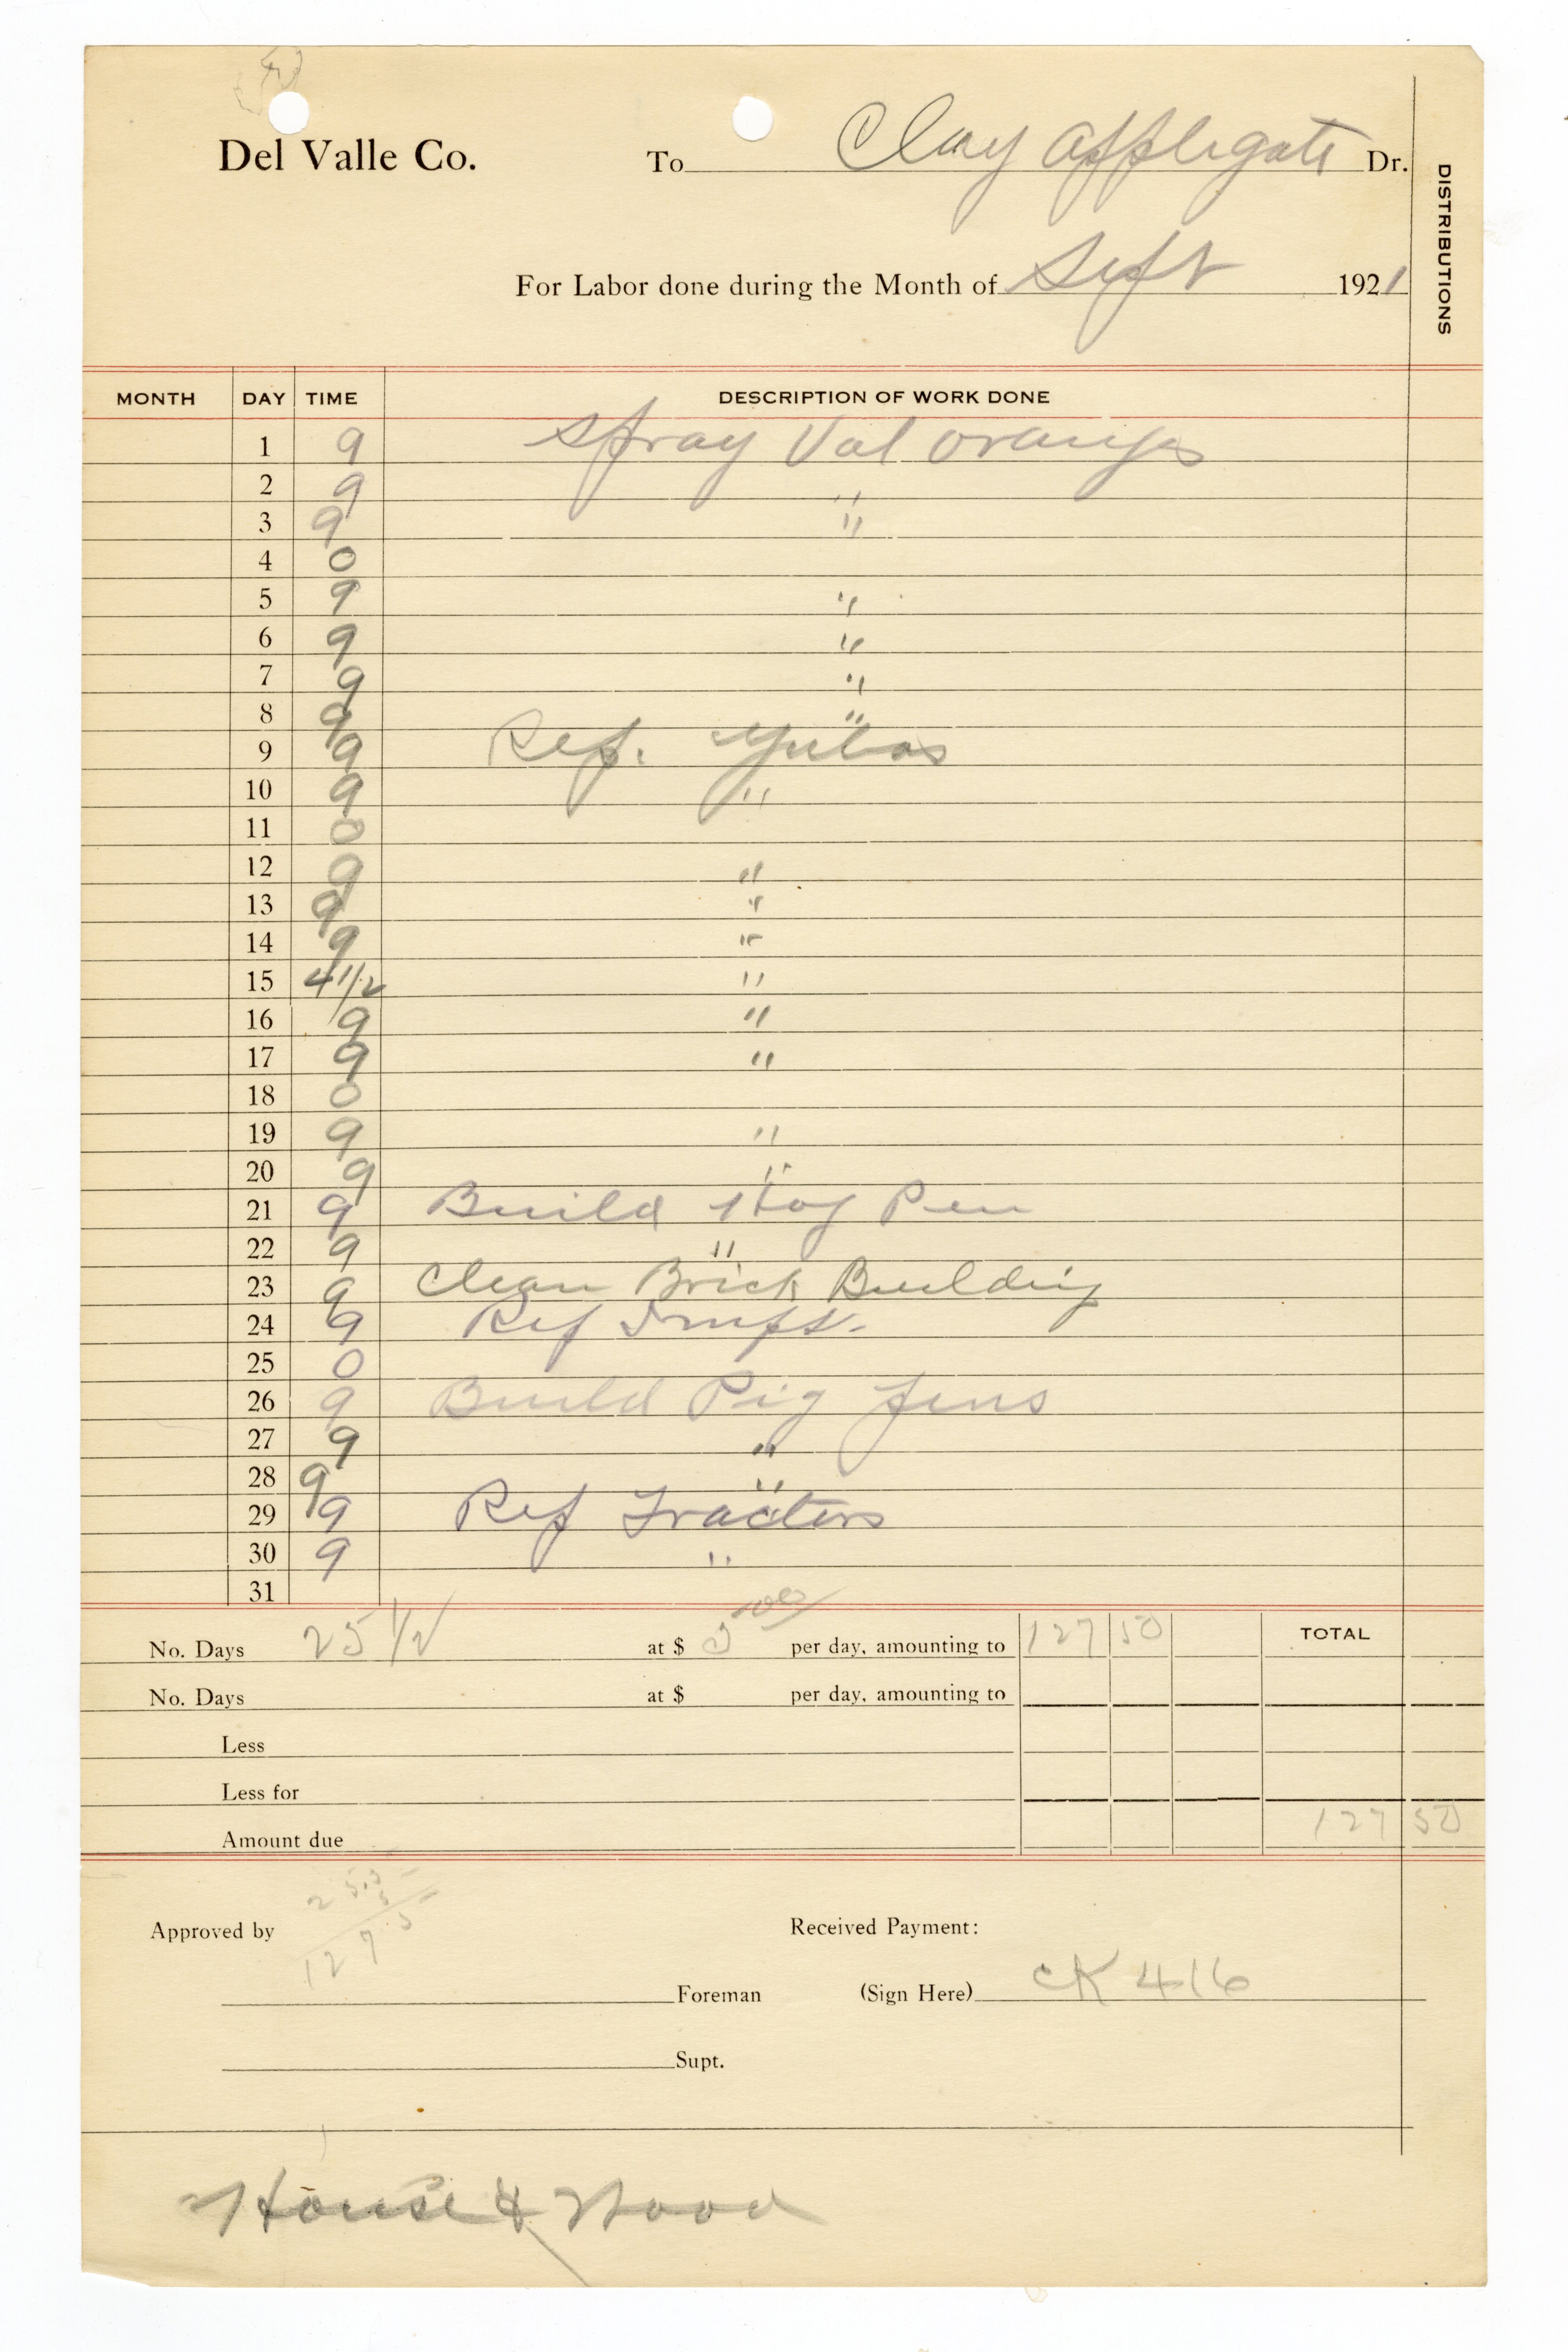 Del Valle Co. To Clay Applegate Dr.
DISTRIBUTIONS
For Labor done during the Month of Sept 1921
MONTH DAY TIME DESCRIPTION OF WORK DONE
1 9 Spray Val oranges
2 9 "
3 9 "
4 0
5 9 "
6 9 "
7 9 "
8 9 "
9 9 Rep. Yubas
10 9 "
11 0
12 9 "
13 9 "
14 9 "
15 4 1/2 "
16 9 "
17 9 "
18 0
19 9 "
20 9 "
21 9 Build Hog Pen
22 9 "
23 9 Clean Brick Building
24 9 Rep
25 0
26 9 Build Pig
27 9 "
28 9 "
29 9 Rep Tractors
30 9 "
31
No. Days 25 1/2 at $ 5 00 per day, amounting to 127 50 TOTAL
No. Days at $ per day, amounting to
Less
Less for
Amount due 127 50
25.5
5
127.5
Approved by Received Payment:
Foreman (Sign Here) CK 416
Supt.
House & Wood